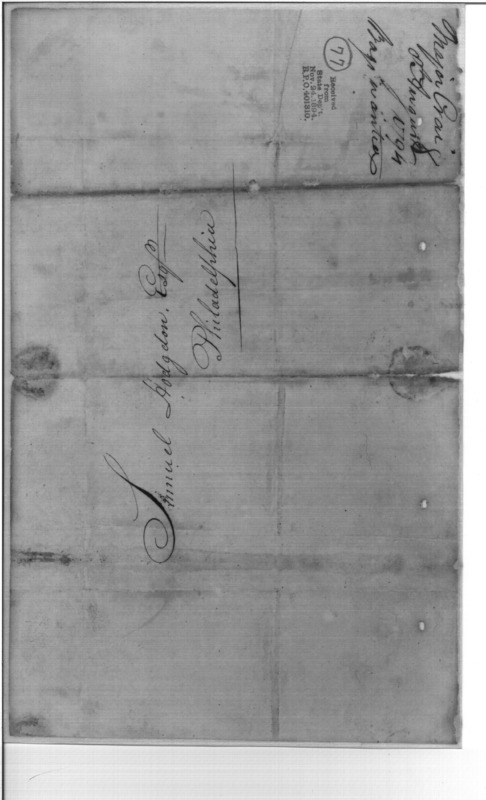 Major Craig
1794
Bags wanted
77
Received
from
State Dep't.
Nov. 24, 1894.
R.P.O. 401810.
Samuel Hodgdon, Esqr
Philadelphia